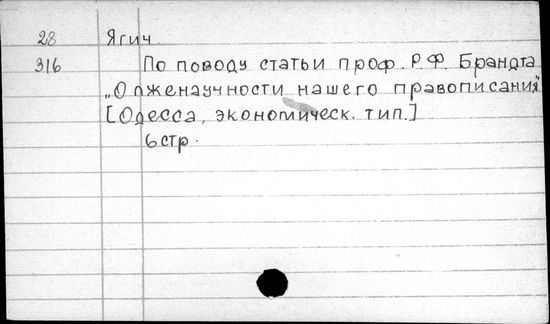 28 Ягич.
316 По поводу статьи проф. Р.Ф. Брандта
„О лженаучности нашего правописания"
[Одесса, экономическ. тип.]
6 стр.